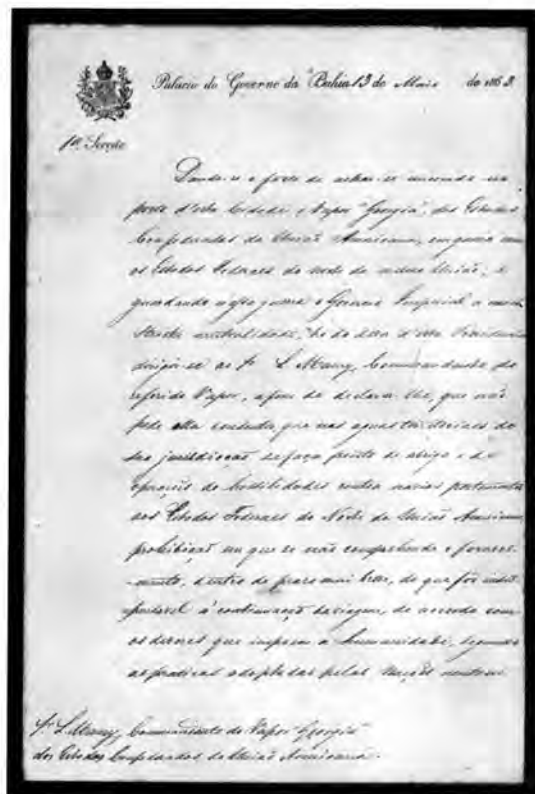 Palacio do Governo da Bahia 13 de Maio de 1863
1ª Secção
Dando-se o facto de achar-se ancorado no
porto d'esta Cidade o Vapor "Georgia", dos Estados
Confederados da União Americana, em guerra com
os Estados Federaes do norte da mesma União; e
guardando n'essa guerra o Governo Imperial a mais
stricta neutralidade, he do dever d'esta Presidencia
dirigir-se ao Sr. L Maury, Commandante do
referido Vapor, a fim de declarar lhe, que não
pode ella consentir, que nas aguas territoriaes de
sua jurisdicção se faça ponto de abrigo e de
operações de hostilidades contra navios pertencentes
aos Estados Federaes do Norte da União Americana,
prohibição em que se não comprehende o forneci-
-mento, dentro de praso mui breve, do que for indis-
pensavel á continuação da viagem, de accordo com
os deveres que impoem a humanidade, segundo
as praticas adoptadas pelas Nações neutras.
Sr. L Maury, Commandante do Vapor "Georgia"
dos Estados Confederados da União Americana.